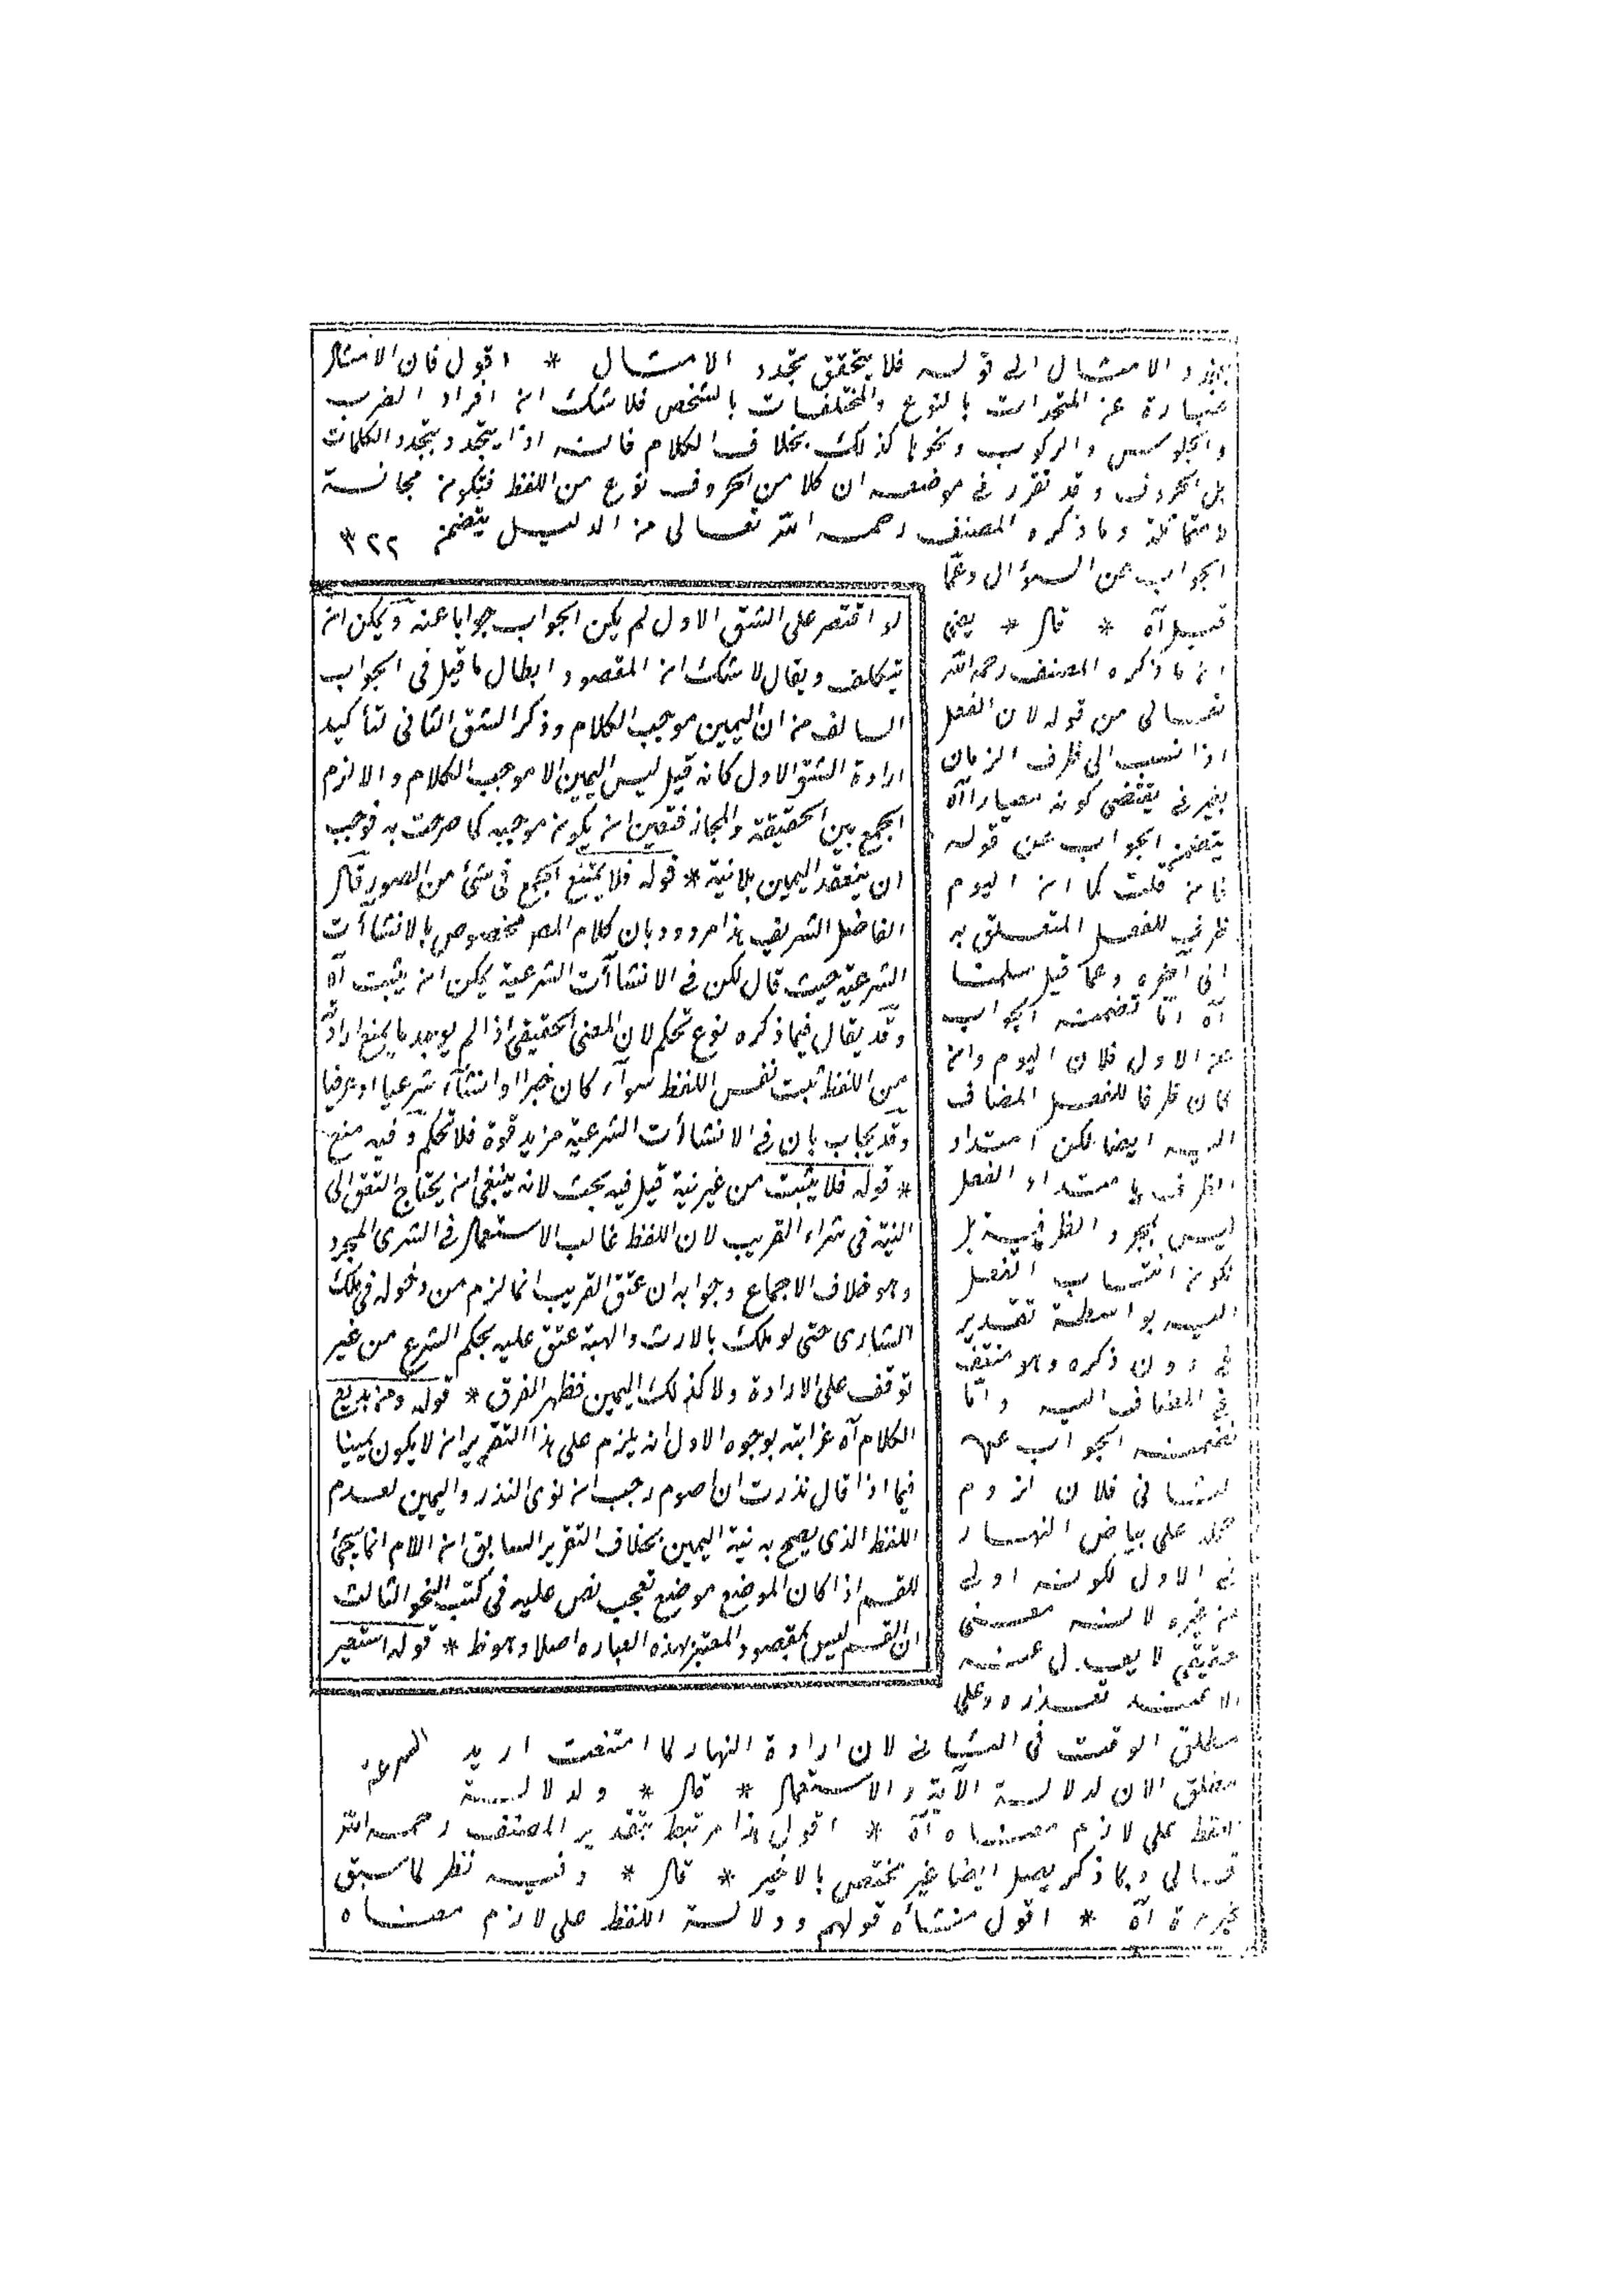 بتجدد الامثال الى قوله فلا يتحقق تجدد الامثال * اقول فان الامثال
عبارة عن المتحدات بالنوع والمختلفات بالشخص فلا شك ان افراد الضرب
والجلوس والركوب ونحوها كذلك بخلاف الكلام فانه اذا يتجدد بتجدد الكلمات
بل الحروف وقد تقرر في موضعه ان كلا من الحروف نوع من اللفظ فتكون مجانسة
لا متماثلة وما ذكره المصنف رحمه الله تعالى من الدليل يتضمن ٣٢٢
الجواب عن السؤال وعما
قيل آه * قال * يعني
ان ما ذكره المصنف رحمه الله
تعالى من قوله لان الفعل
اذا نسب الى ظرف الزمان
بغير في يقتضي كونه معيارا آه
يتضمن الجواب عن قوله
فان قلت كما ان اليوم
ظرف للفعل المتعلق به
الى آخره وعما قيل سلمنا
آه اما تضمنه الجواب
عن الاول فلان اليوم وان
كان ظرفا للفعل المضاف
اليه ايضا لكن امتداد
الظرف بامتداد الفعل
ليس بمجرد الظرفية بل
لكون انتساب الفعل
اليه بواسطة تقدير
في دون ذكره وهو منتف
في المضاف اليه واما
تضمنه الجواب عن
الثاني فلان لزوم
حمله على بياض النهار
في الاول لكونه اولى
من غيره لانه معنى
حقيقي لا يعدل عنه
الا عند تعذره وعلى
مطلق الوقت في الثاني لان ارادة النهار لما امتنعت اريد
مطلق الآن لدلالة الآية والاستعمال * قال * ولدلالة
اللفظ على لازم معناه آه * اقول هذا مرتبط بتقدير المصنف رحمه الله
تعالى وبما ذكر يصل ايضا غير مختص بالاخير * قال * وفيه نظر لما سبق
غير مرة آه * اقول منشأه قولهم ودلالة اللفظ على لازم معناه
لو اقتصر على الشق الاول لم يكن الجواب جوابا عنه ويمكن ان
يتكلف ويقال لا شك ان المقصود ابطال ما قيل في الجواب
السالف من ان اليمين موجب الكلام وذكر الشق الثاني لتأكيد
ارادة الشق الاول كانه قيل ليس اليمين الا موجب الكلام والا لزم
الجمع بين الحقيقة والمجاز فتعين ان يكون موجبه كما صرحت به فوجب
ان ينعقد اليمين بلا نية * قوله فلا يمتنع الجمع في شئ من الصور قال
الفاضل الشريف هذا مردود بان كلام المص مخصوص بالانشاآت
الشرعية حيث قال لكن في الانشاآت الشرعية يمكن ان يثبت آه
وقد يقال فيما ذكره نوع تحكم لان المعنى الحقيقي اذا لم يوجد ما يمنع ارادته
من اللفظ ثبت نفس اللفظ سواء كان خبرا او انشاء شرعيا او عرفيا
وقد يجاب بان في الانشاآت الشرعية مزيد قوة فلا تحكم وفيه منع
* قوله فلا يثبت من غير نية قيل فيه بحث لانه ينبغي ان يحتاج العتق الى
النية في شراء القريب لان اللفظ غالب الاستعمال في الشرى المجرد
وهو خلاف الاجماع وجوابه ان عتق القريب انما لزم من دخوله في ملك
الشارى حتى لو ملك بالارث والهبة عتق عليه بحكم الشرع من غير
توقف على الارادة ولا كذلك اليمين فظهر الفرق * قوله ومن بديع
الكلام آه غرابته بوجوه الاول انه يلزم على هذا التقرير ان لا يكون يمينا
فيما اذا قال نذرت ان اصوم رجب ان نوى النذر واليمين لعدم
اللفظ الذى يصح به نية اليمين بخلاف التقرير السابق ان اللام انما يجئ
للقسم اذا كان الموضع موضع تعجب نص عليه في كتب النحو الثالث
ان القسم ليس بمقصود المعتبر لهذه العباره اصلا وملحوظ * قوله استعير